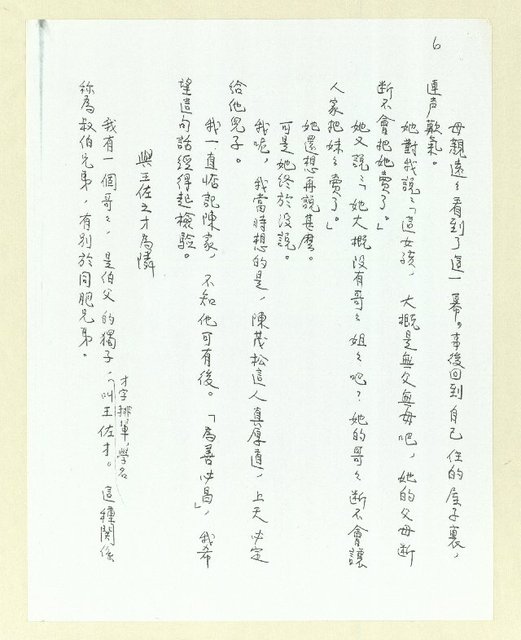 6
母親遠々看到了這一幕。事後回到自己住的屋子裏，
連声歎氣。
她對我說：「這女孩，大概是無父無母吧，她的父母断
断不會把她賣了。」
她又說：「她大概沒有哥々姐々吧？她的哥々断不會讓
人家把妹々賣了。」
她還想再說甚麼。
可是她終於沒說。
我呢，我當時想的是，陳茂松這人真厚道，上天必定
給他兒子。
我一直惦記陳家，不知他可有後。「為善必昌」，我希
望這句話經得起檢驗。
與王佐之才為隣
我有一個哥々，是伯父的獨子，才字排輩，學名叫王佐才。這種關係
称為叔伯兄弟，有別於同胞兄弟。